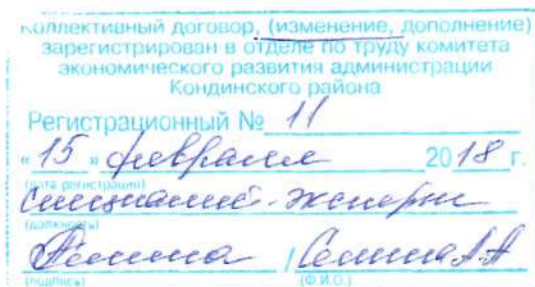 Коллективный договор, (изменение, дополнение)
зарегистрирован в отделе по труду комитета
экономического развития администрации
Кондинского района
Регистрационный № 11
«15» февраля 2018 г.
(дата регистрации)
специалист-эксперт
(должность)
/ А.А
(подпись) (Ф.И.О.)